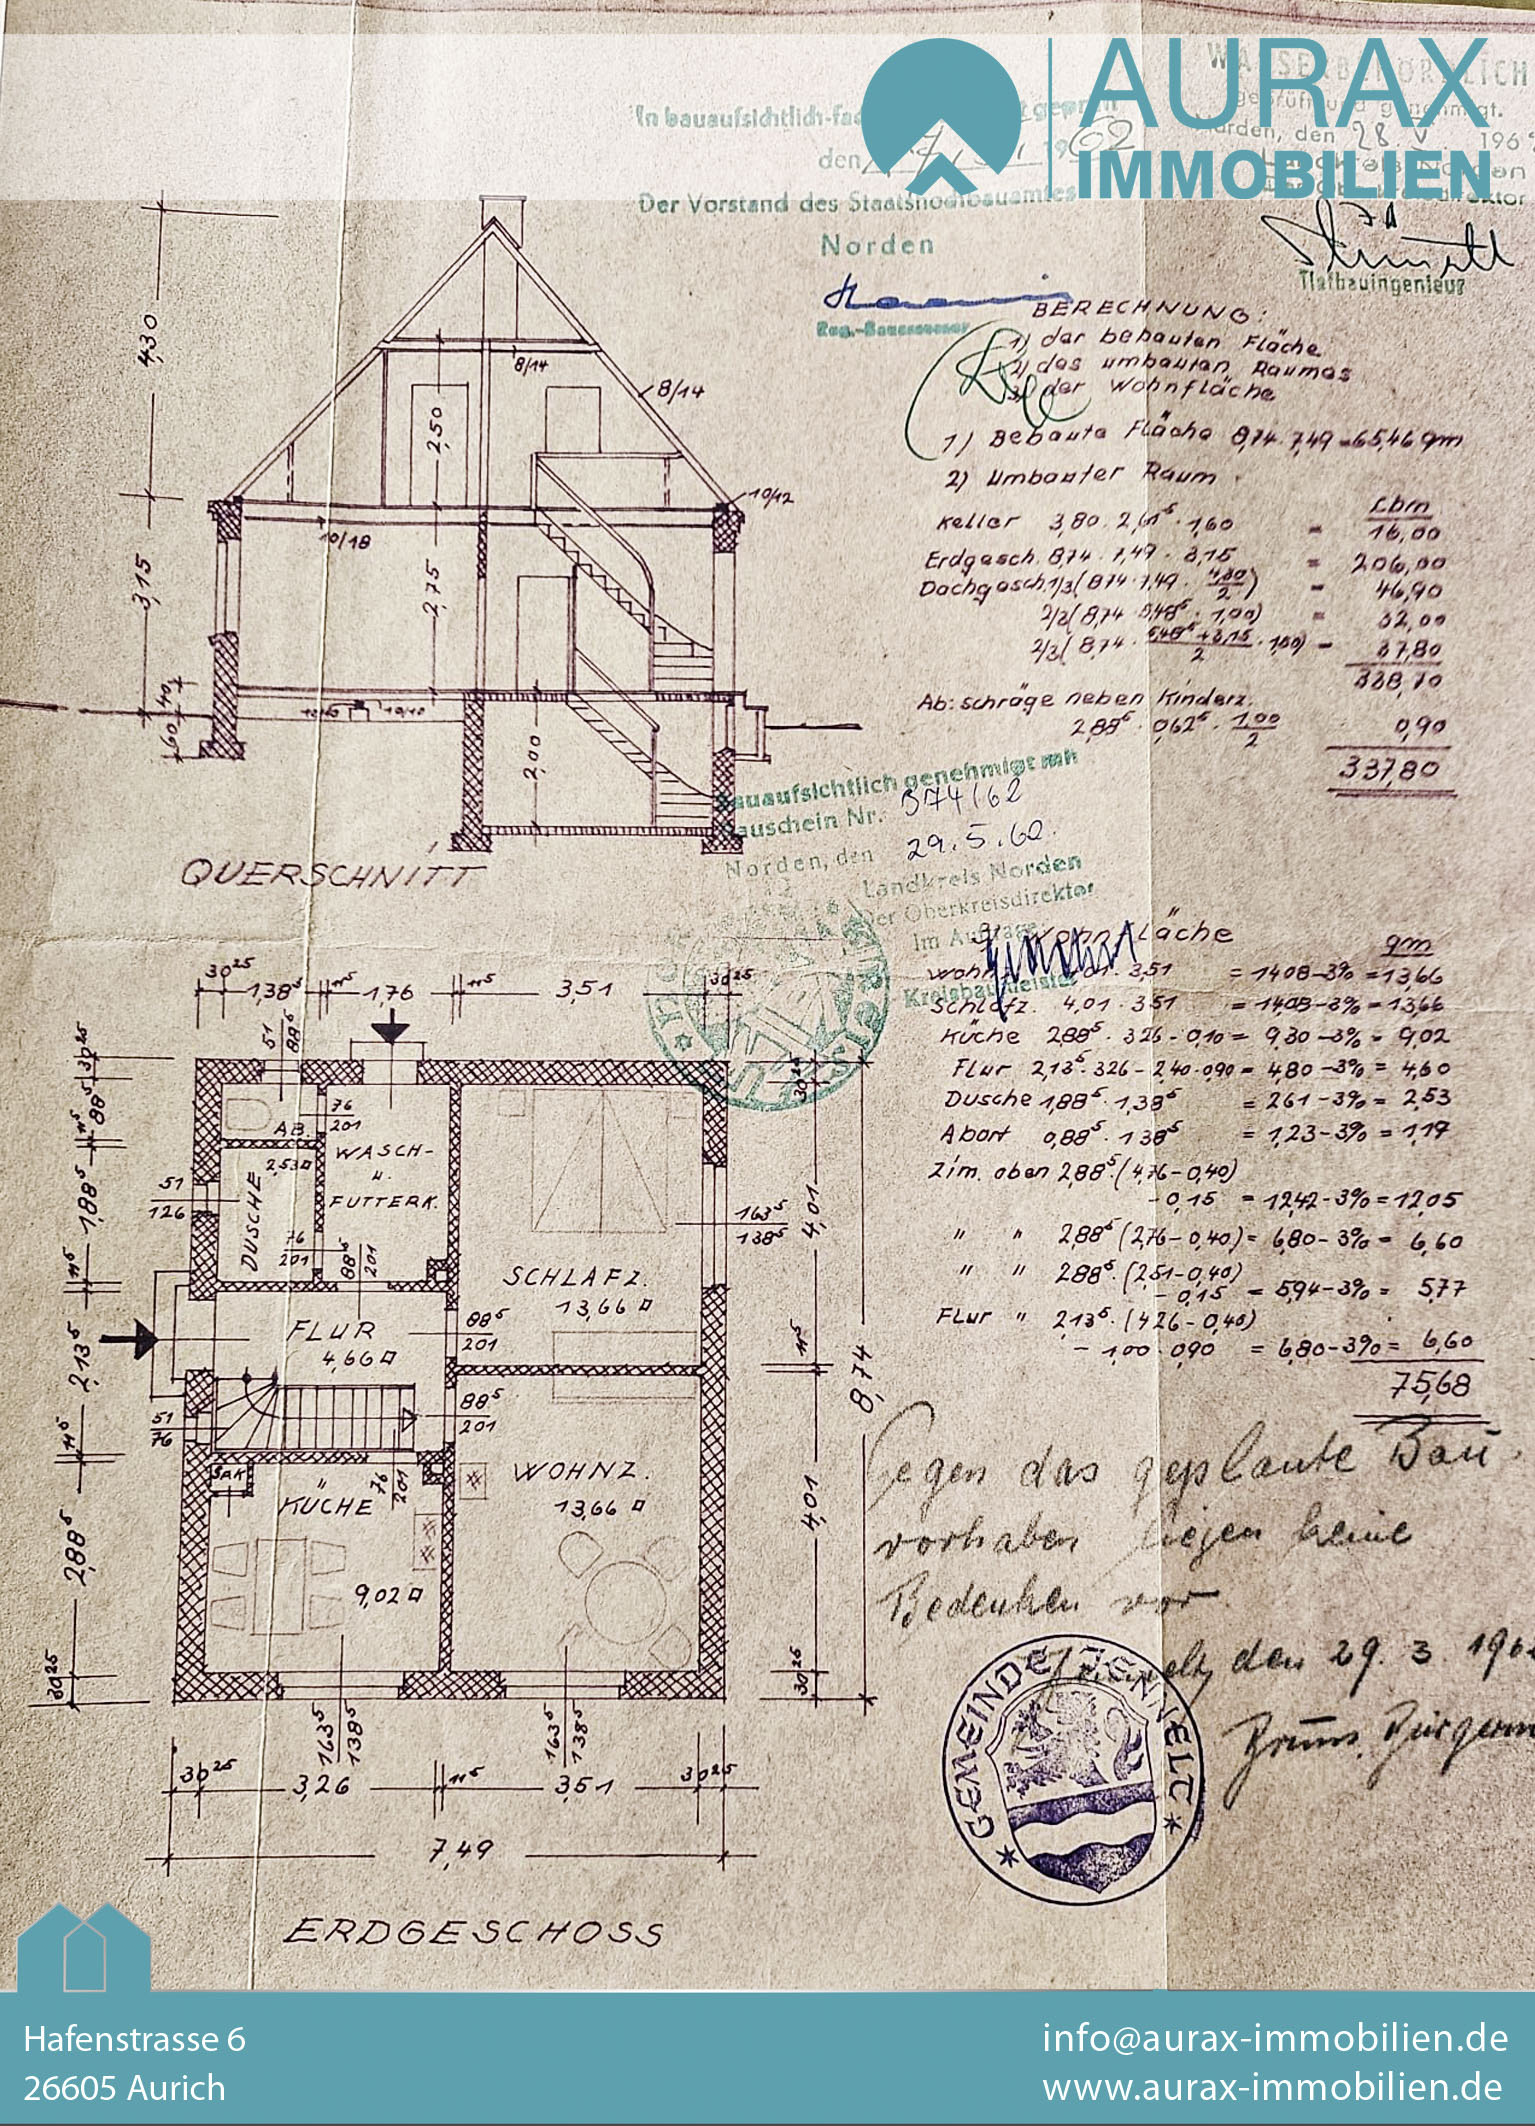 AURAX
IMMOBILIEN
In bauaufsichtlich-
den 1962
Der Vorstand des Staatshochbauamtes
Norden
geprüft und genehmigt.
Norden, den 28. V. 196
Tiefbauingenieur
BERECHNUNG:
1) der bebauten Fläche
2) das umbauten Raumes
3) der Wohnfläche
1) Bebaute Fläche 8,74 · 7,49 = 65,46 qm
2) Umbauter Raum
cbm
Keller 3,80 · 2,61⁵ · 1,60 = 16,00
Erdgesch. 8,74 · 7,49 · 3,15 = 206,00
Dachgesch. 1/3 (8,74 · 7,49 · 4,30/2) = 46,90
2/3 (8,74 · 5,48⁵ · 1,00) = 32,00
2/3 (8,74 · 5,48⁵ + 3,15 / 2 · 1,50) = 37,80
338,70
Ab: schräge neben Kinderz.
2,88⁵ · 0,62⁵ · 1,00/2 0,90
337,80
4,30
3,15
40
60
2,50
2,75
2,00
8/14
8/14
10/12
10/18
QUERSCHNITT
Bauaufsichtlich genehmigt mit
Bauschein Nr. 374/62
Norden, den 29.5.62.
Landkreis Norden
Der Oberkreisdirektor
Im Auftrage
Kreisbaumeister
3) Wohnfläche
qm
Wohnz. 4,01 · 3,51 = 14,08 - 3% = 13,66
Schlafz. 4,01 · 3,51 = 14,08 - 3% = 13,66
Küche 2,88⁵ · 3,26 - 0,10 = 9,30 - 3% = 9,02
Flur 2,13⁵ · 3,26 - 2,40 · 0,90 = 4,80 - 3% = 4,60
Dusche 1,88⁵ · 1,38⁵ = 2,61 - 3% = 2,53
Abort 0,88⁵ · 1,38⁵ = 1,23 - 3% = 1,19
Zim. oben 2,88⁵ · (4,76 - 0,40)
- 0,15 = 12,42 - 3% = 12,05
" " 2,88⁵ (2,76 - 0,40) = 6,80 - 3% = 6,60
" " 2,88⁵ · (2,51 - 0,40)
- 0,15 = 5,94 - 3% = 5,77
Flur " 2,13⁵ · (4,26 - 0,40)
- 1,00 · 0,90 = 6,80 - 3% = 6,60
75,68
30²⁵ 1,38⁵ 11⁵ 1,76 11⁵ 3,51 30²⁵
51
88⁵
30²⁵
88⁵
11⁵
1,88⁵
11⁵
2,13⁵
11⁵
2,88⁵
30²⁵
AB.
76
201
2,53 □
DUSCHE
51
126
76
201
WASCH-
U.
FUTTERK.
88⁵
201
SCHLAFZ.
13,66 □
163⁵
138⁵
FLUR
4,66 □
88⁵
201
88⁵
201
51
76
SRK
KÜCHE
76
201
9,02 □
WOHNZ.
13,66 □
30²⁵
4,01
11⁵
4,01
30²⁵
8,74
163⁵
138⁵
163⁵
138⁵
30²⁵ 3,26 11⁵ 3,51 30²⁵
7,49
ERDGESCHOSS
Gegen das geplante Bau-
vorhaben liegen keine
Bedenken vor.
Jennelt, den 29. 3. 1962
Bruns, Bürgerm
GEMEINDE JENNELT
Hafenstrasse 6
26605 Aurich
info@aurax-immobilien.de
www.aurax-immobilien.de